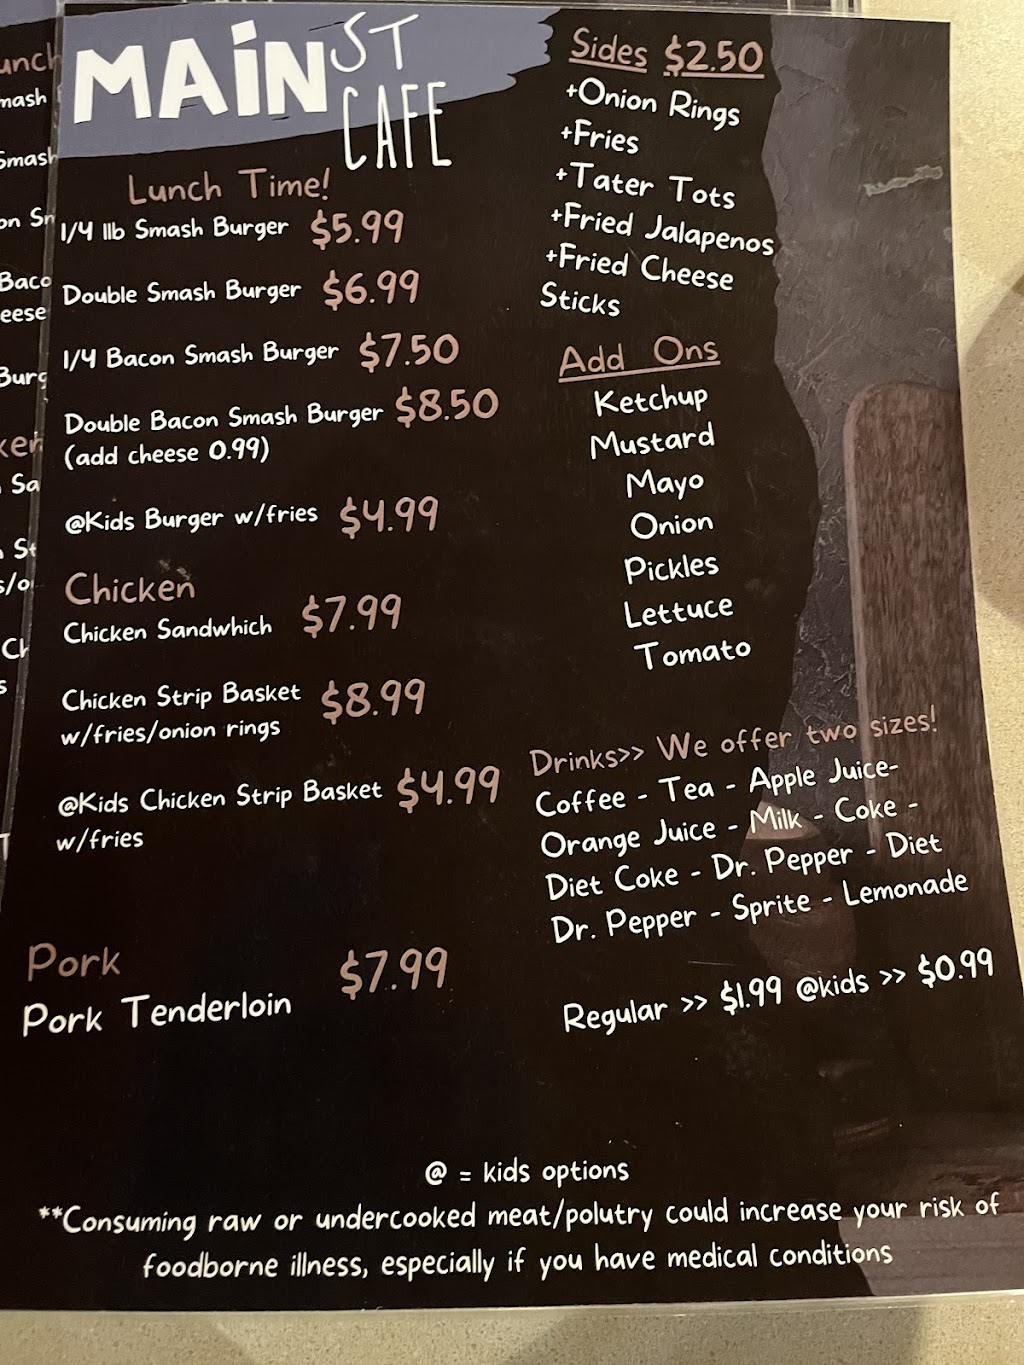 MAIN ST
CAFE
Lunch Time!
1/4 llb Smash Burger $5.99
Double Smash Burger $6.99
1/4 Bacon Smash Burger $7.50
Double Bacon Smash Burger $8.50
(add cheese 0.99)
@Kids Burger w/fries $4.99
Chicken
Chicken Sandwhich $7.99
Chicken Strip Basket $8.99
w/fries/onion rings
@Kids Chicken Strip Basket $4.99
w/fries
Pork
Pork Tenderloin $7.99
Sides $2.50
+Onion Rings
+Fries
+Tater Tots
+Fried Jalapenos
+Fried Cheese
Sticks
Add Ons
Ketchup
Mustard
Mayo
Onion
Pickles
Lettuce
Tomato
Drinks>> We offer two sizes!
Coffee - Tea - Apple Juice-
Orange Juice - Milk - Coke -
Diet Coke - Dr. Pepper - Diet
Dr. Pepper - Sprite - Lemonade
Regular >> $1.99 @kids >> $0.99
@ = kids options
**Consuming raw or undercooked meat/polutry could increase your risk of
foodborne illness, especially if you have medical conditions